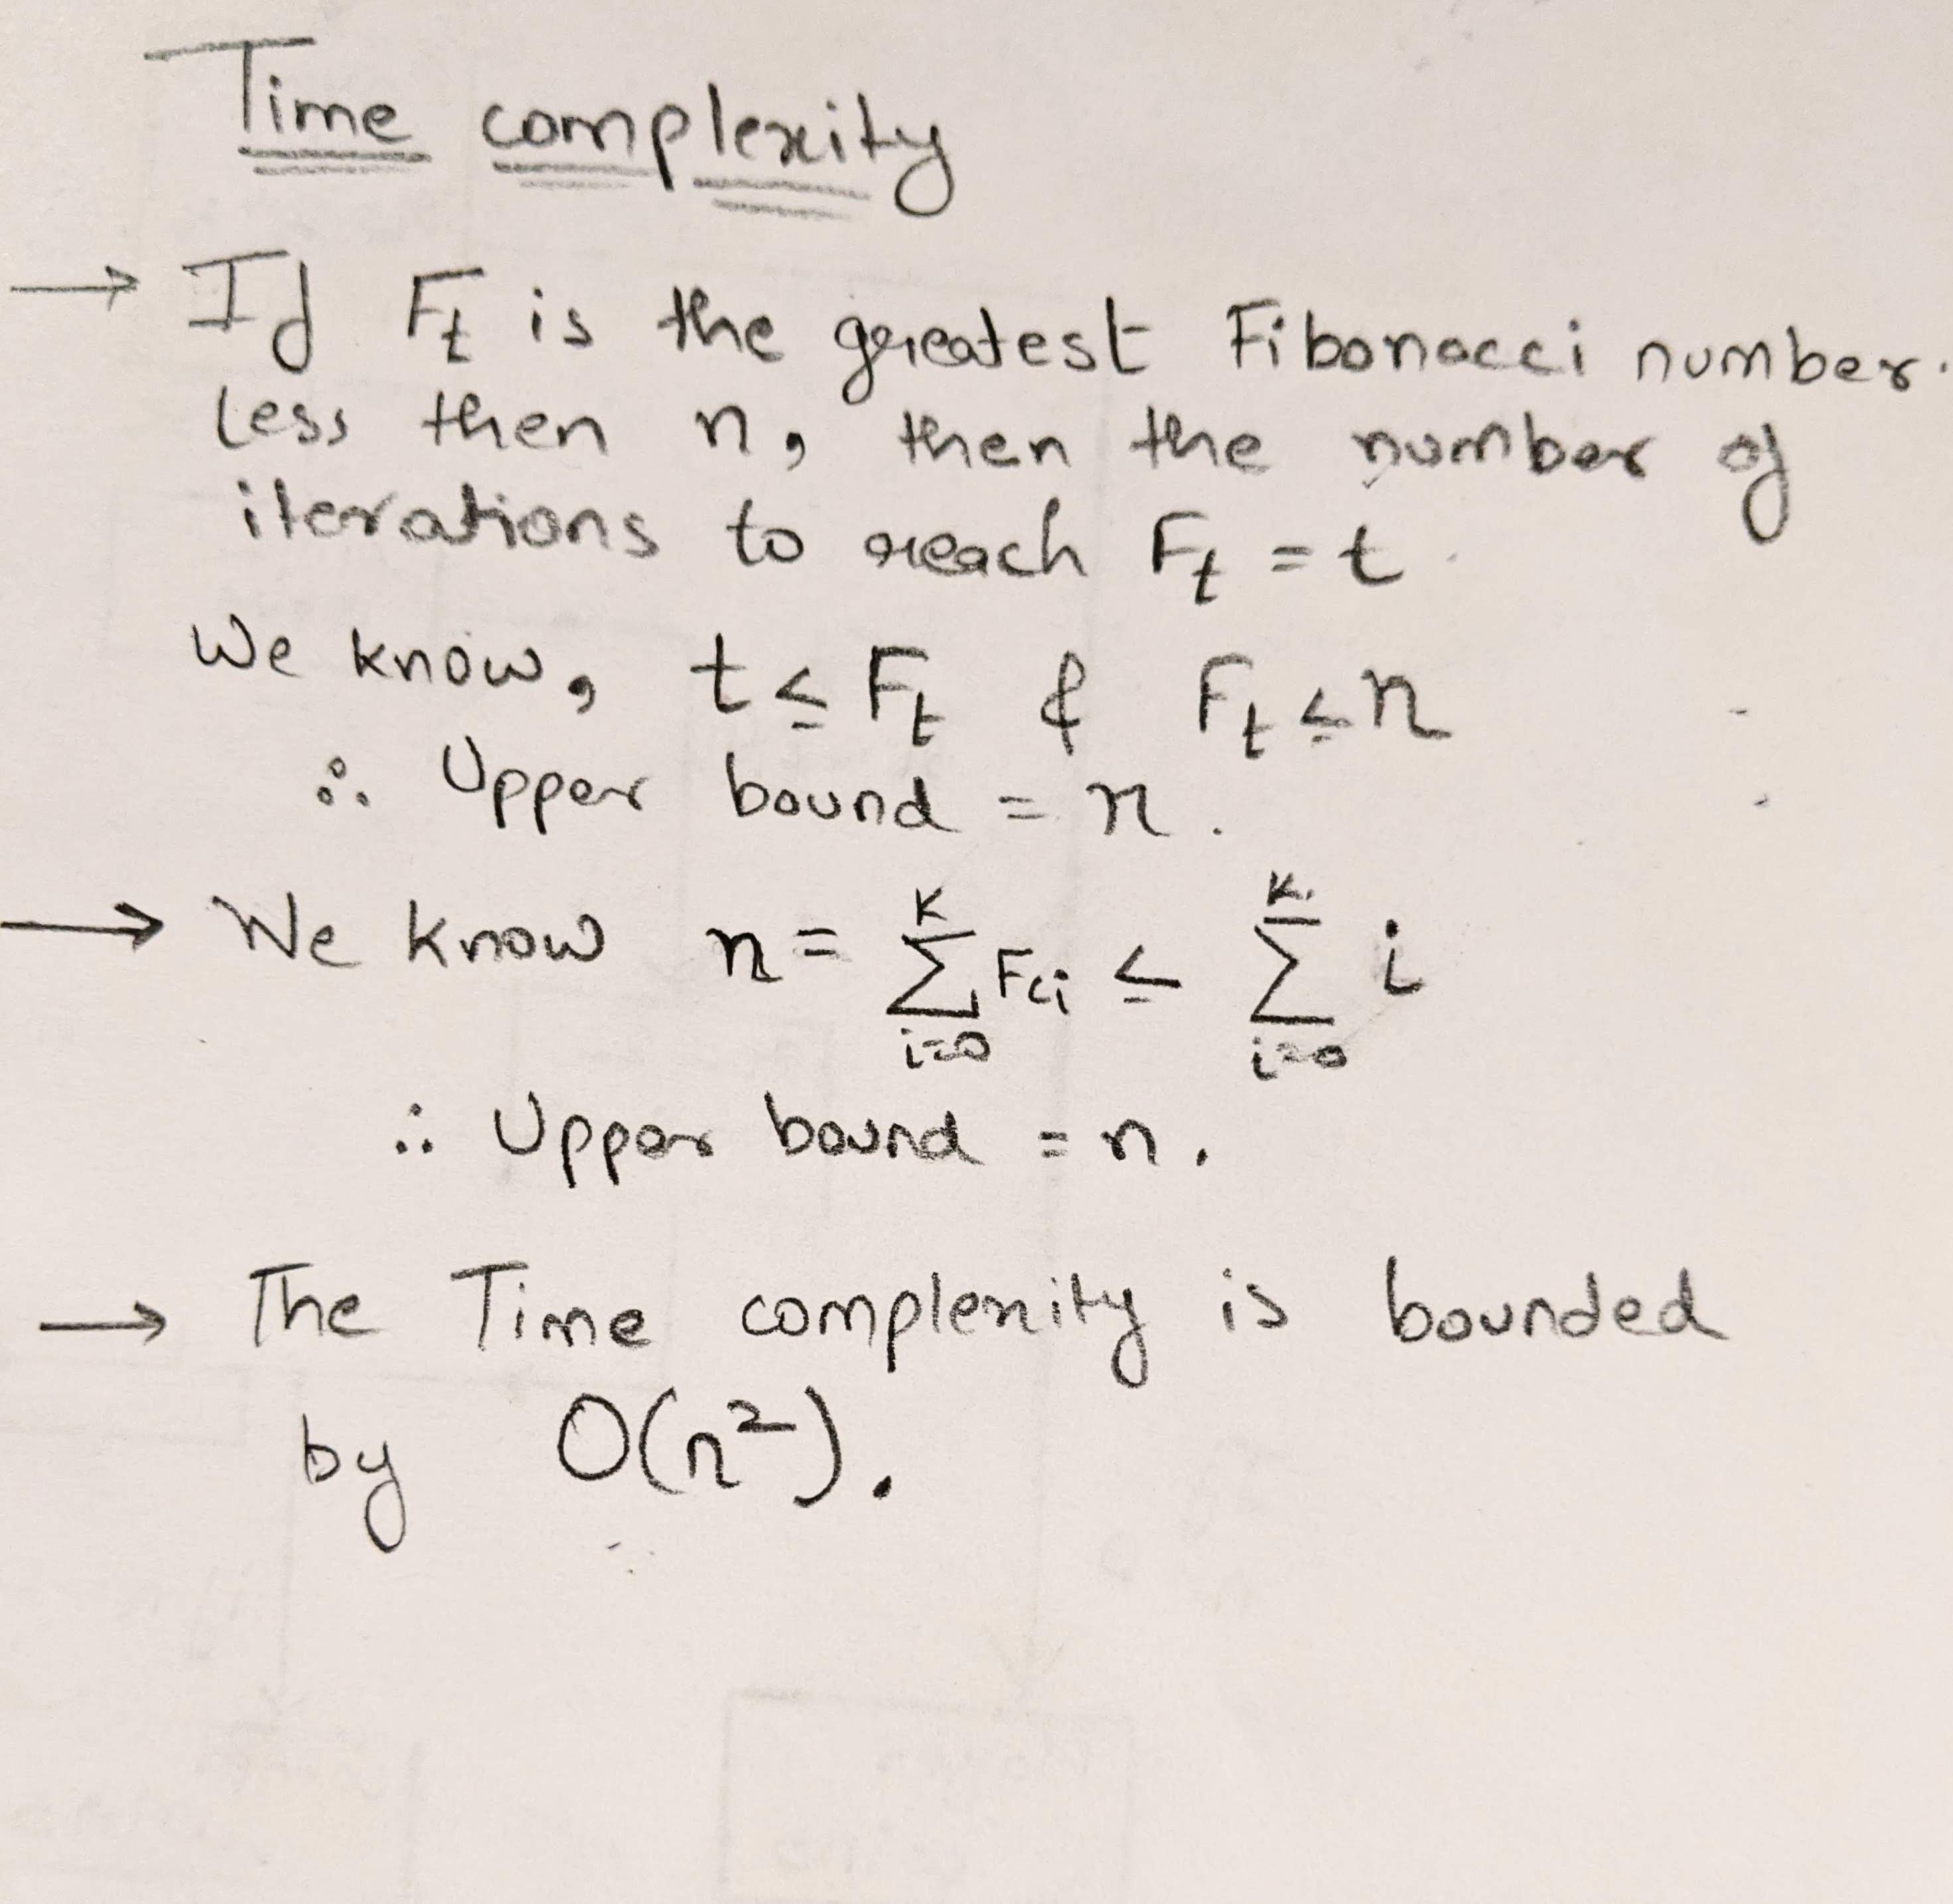 Time complexity
→ If Fₜ is the greatest Fibonacci number.
less then n, then the number of
iterations to reach Fₜ = t.
We know, t ≤ Fₜ & Fₜ ≤ n
∴ Upper bound = n.
→ We know n = ∑_{i=0}^{K} F_{ci} ≤ ∑_{i=0}^{K} i
∴ Upper bound = n.
→ The Time complexity is bounded
by O(n²).